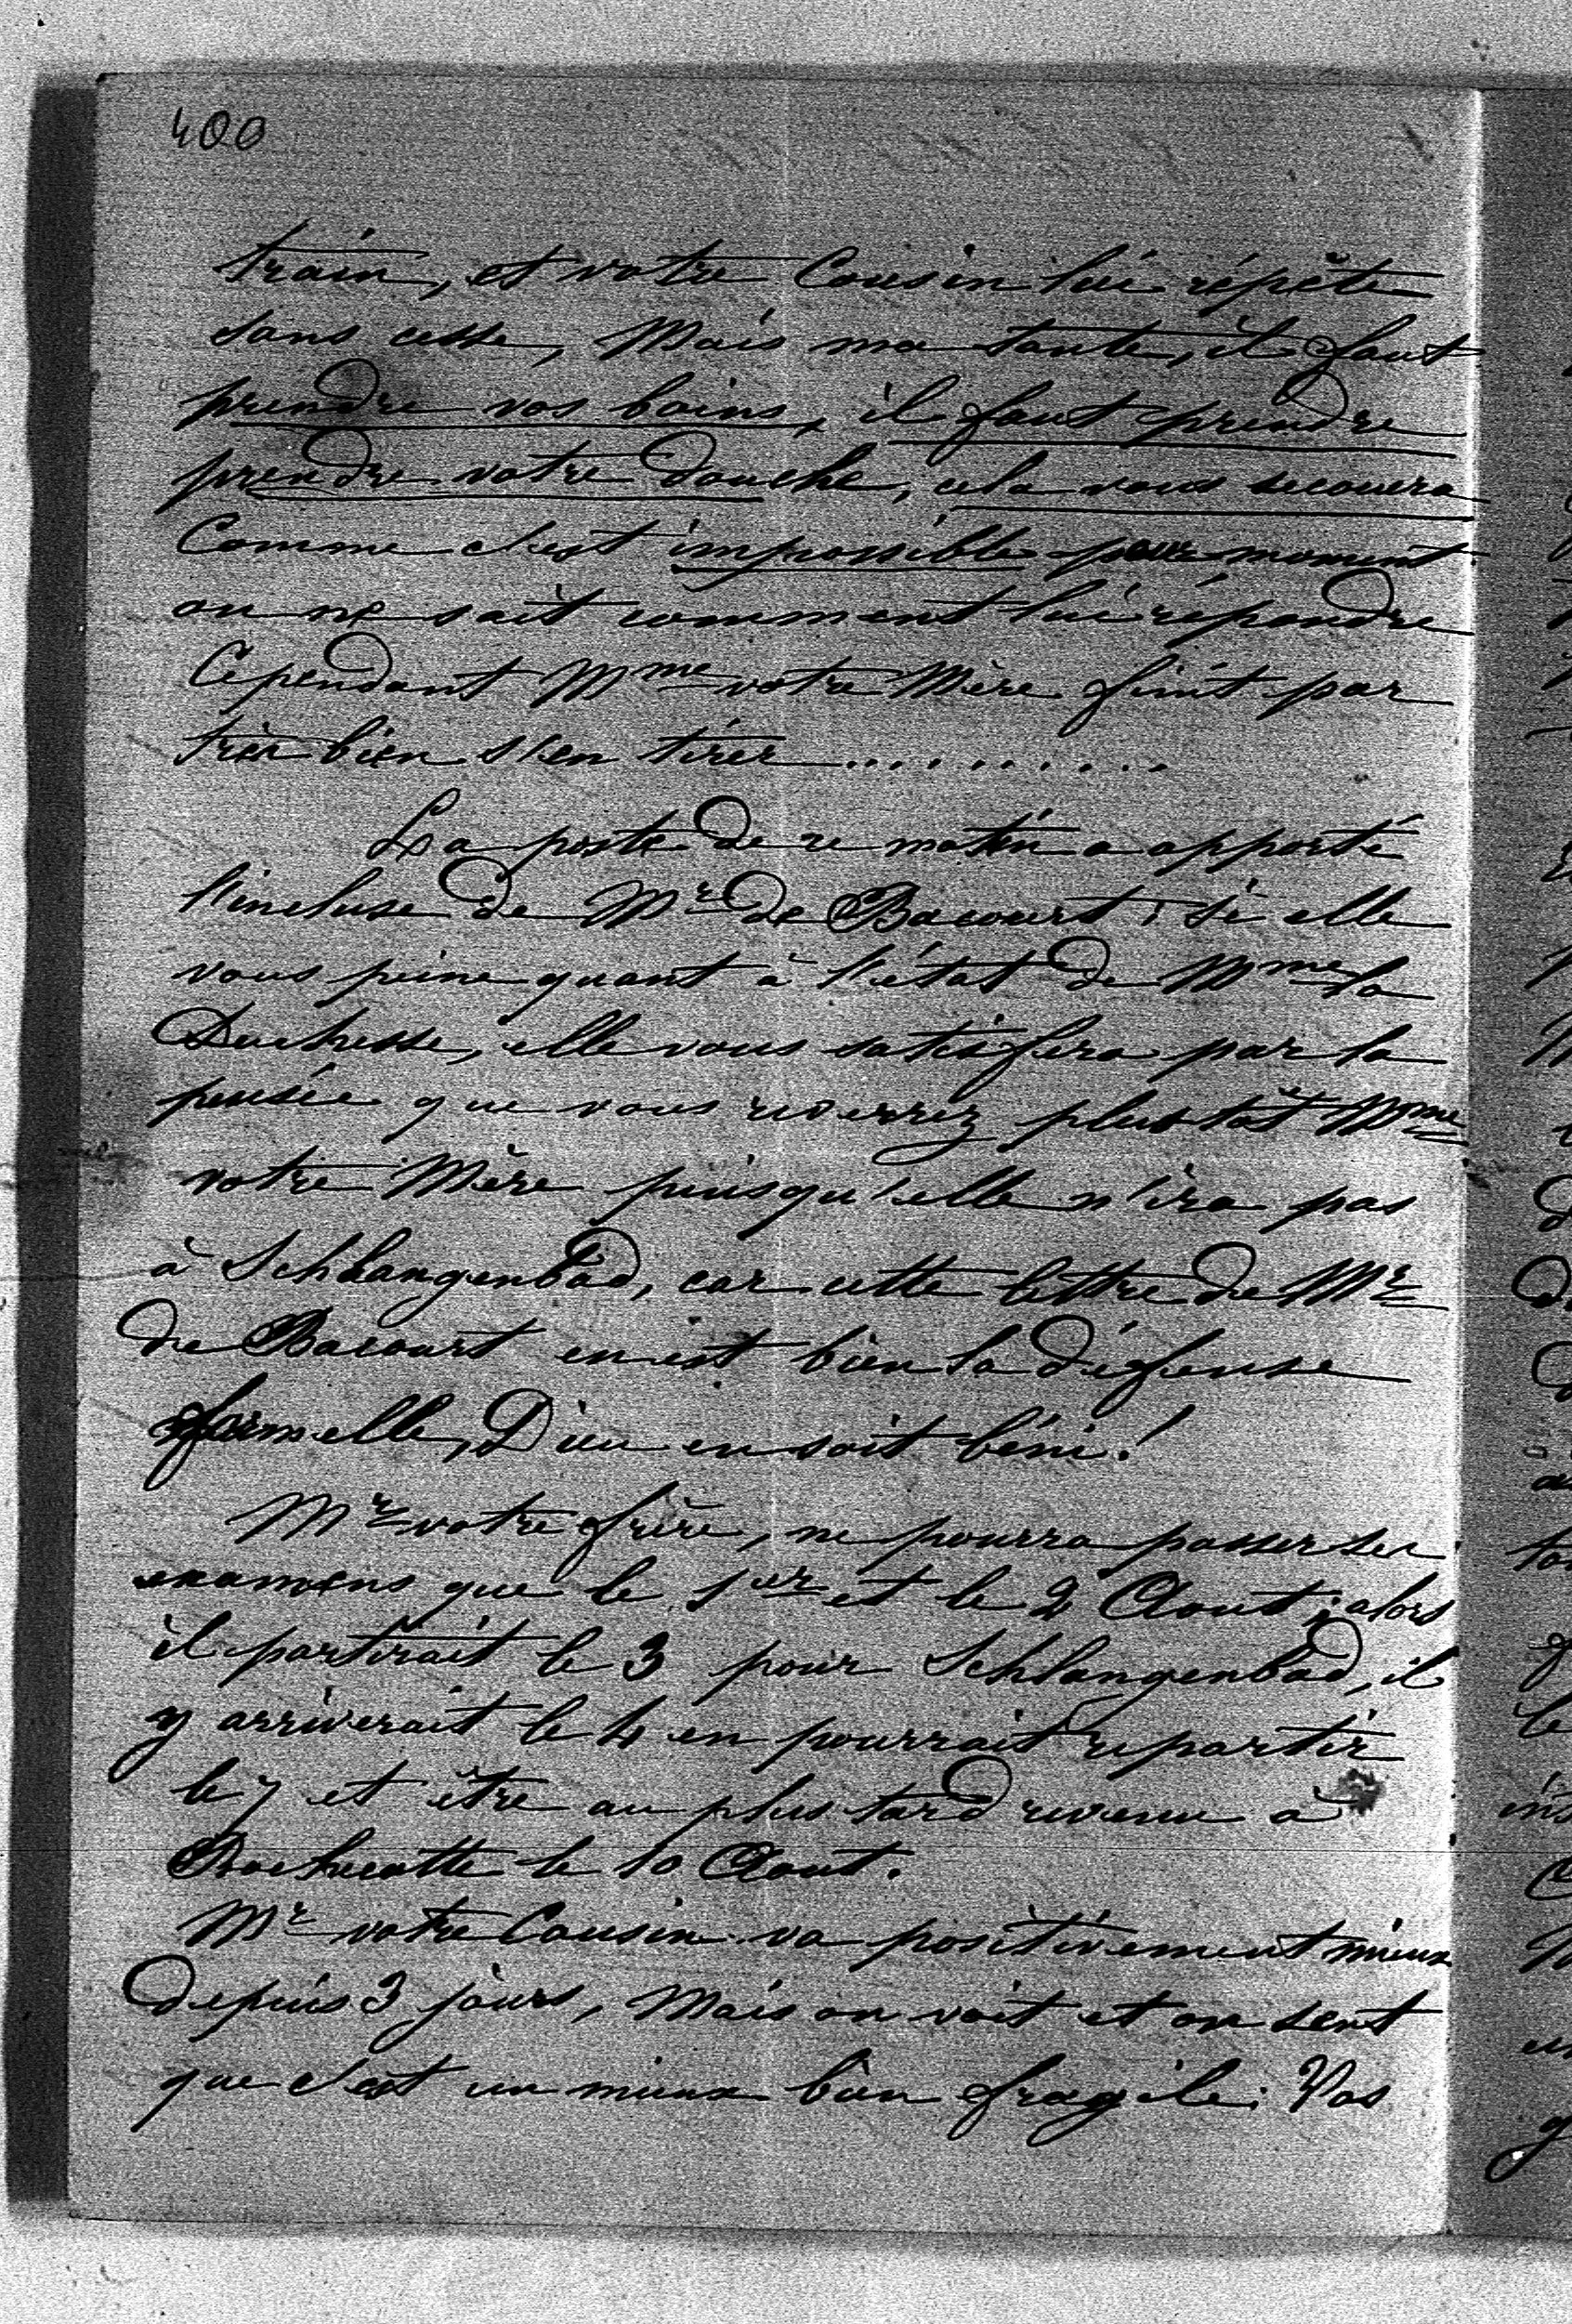 400
train, et votre Cousin lui répète
sans cesse, Mais ma tante, il faut
prendre vos bains, il faut prendre
prendre votre douche, cela vous secouera
Comme c'est impossible pour moment
on ne sait comment lui répondre
Cependant Mme votre Mère finit par
très bien s'en tirer..........
La poste de ce matin a apporté
l'incluse de Mr de Bacourt; si elle
vous peine quant à l'état de Mme la
Duchesse, elle vous satisfera par la
pensée que vous reverrez plus tôt Mme
votre Mère puisqu'elle n'ira pas
à Schlangenbad, car cette lettre de Mr
de Bacourt en est bien la défense
formelle, Dieu en soit béni!
Mr votre frère, ne pourra passer ses
examens que le 1er et le 2 Aout; alors
il partirait le 3 pour Schlangenbad, il
y arriverait le 4 en pourrait repartir
le 7 et être au plus tard revenu à
Rochecotte le 10 Aout.
Mr votre Cousin va positivement mieux
depuis 3 jours, Mais on voit et on sent
que c'est un mieux bien fragile. Vos